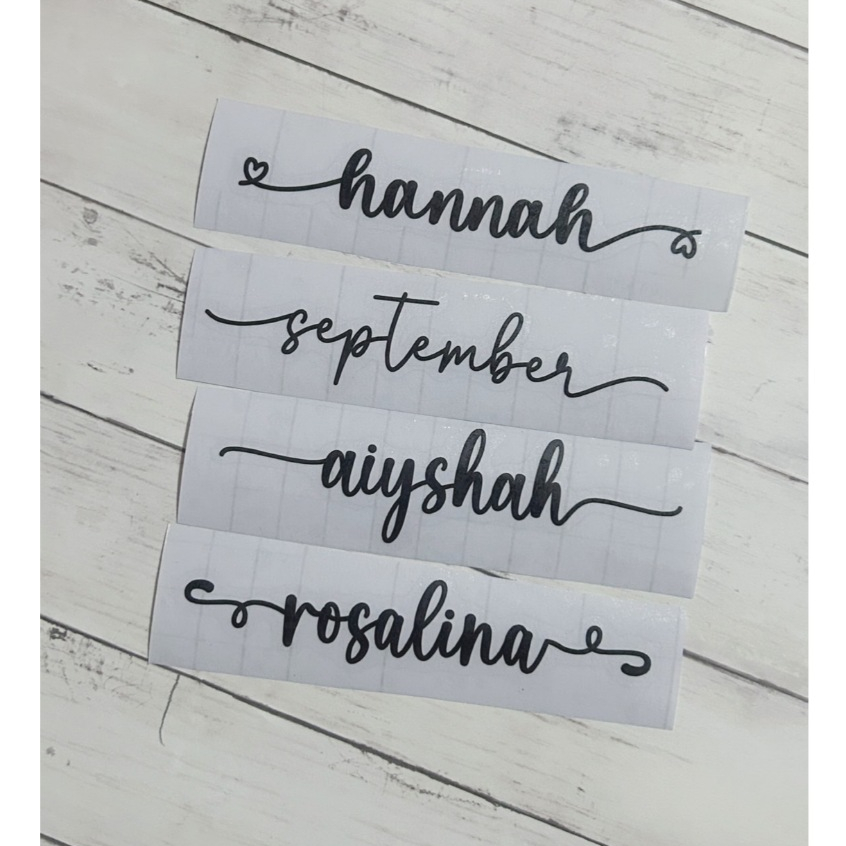 hannah
september
aiyshah
rosalina